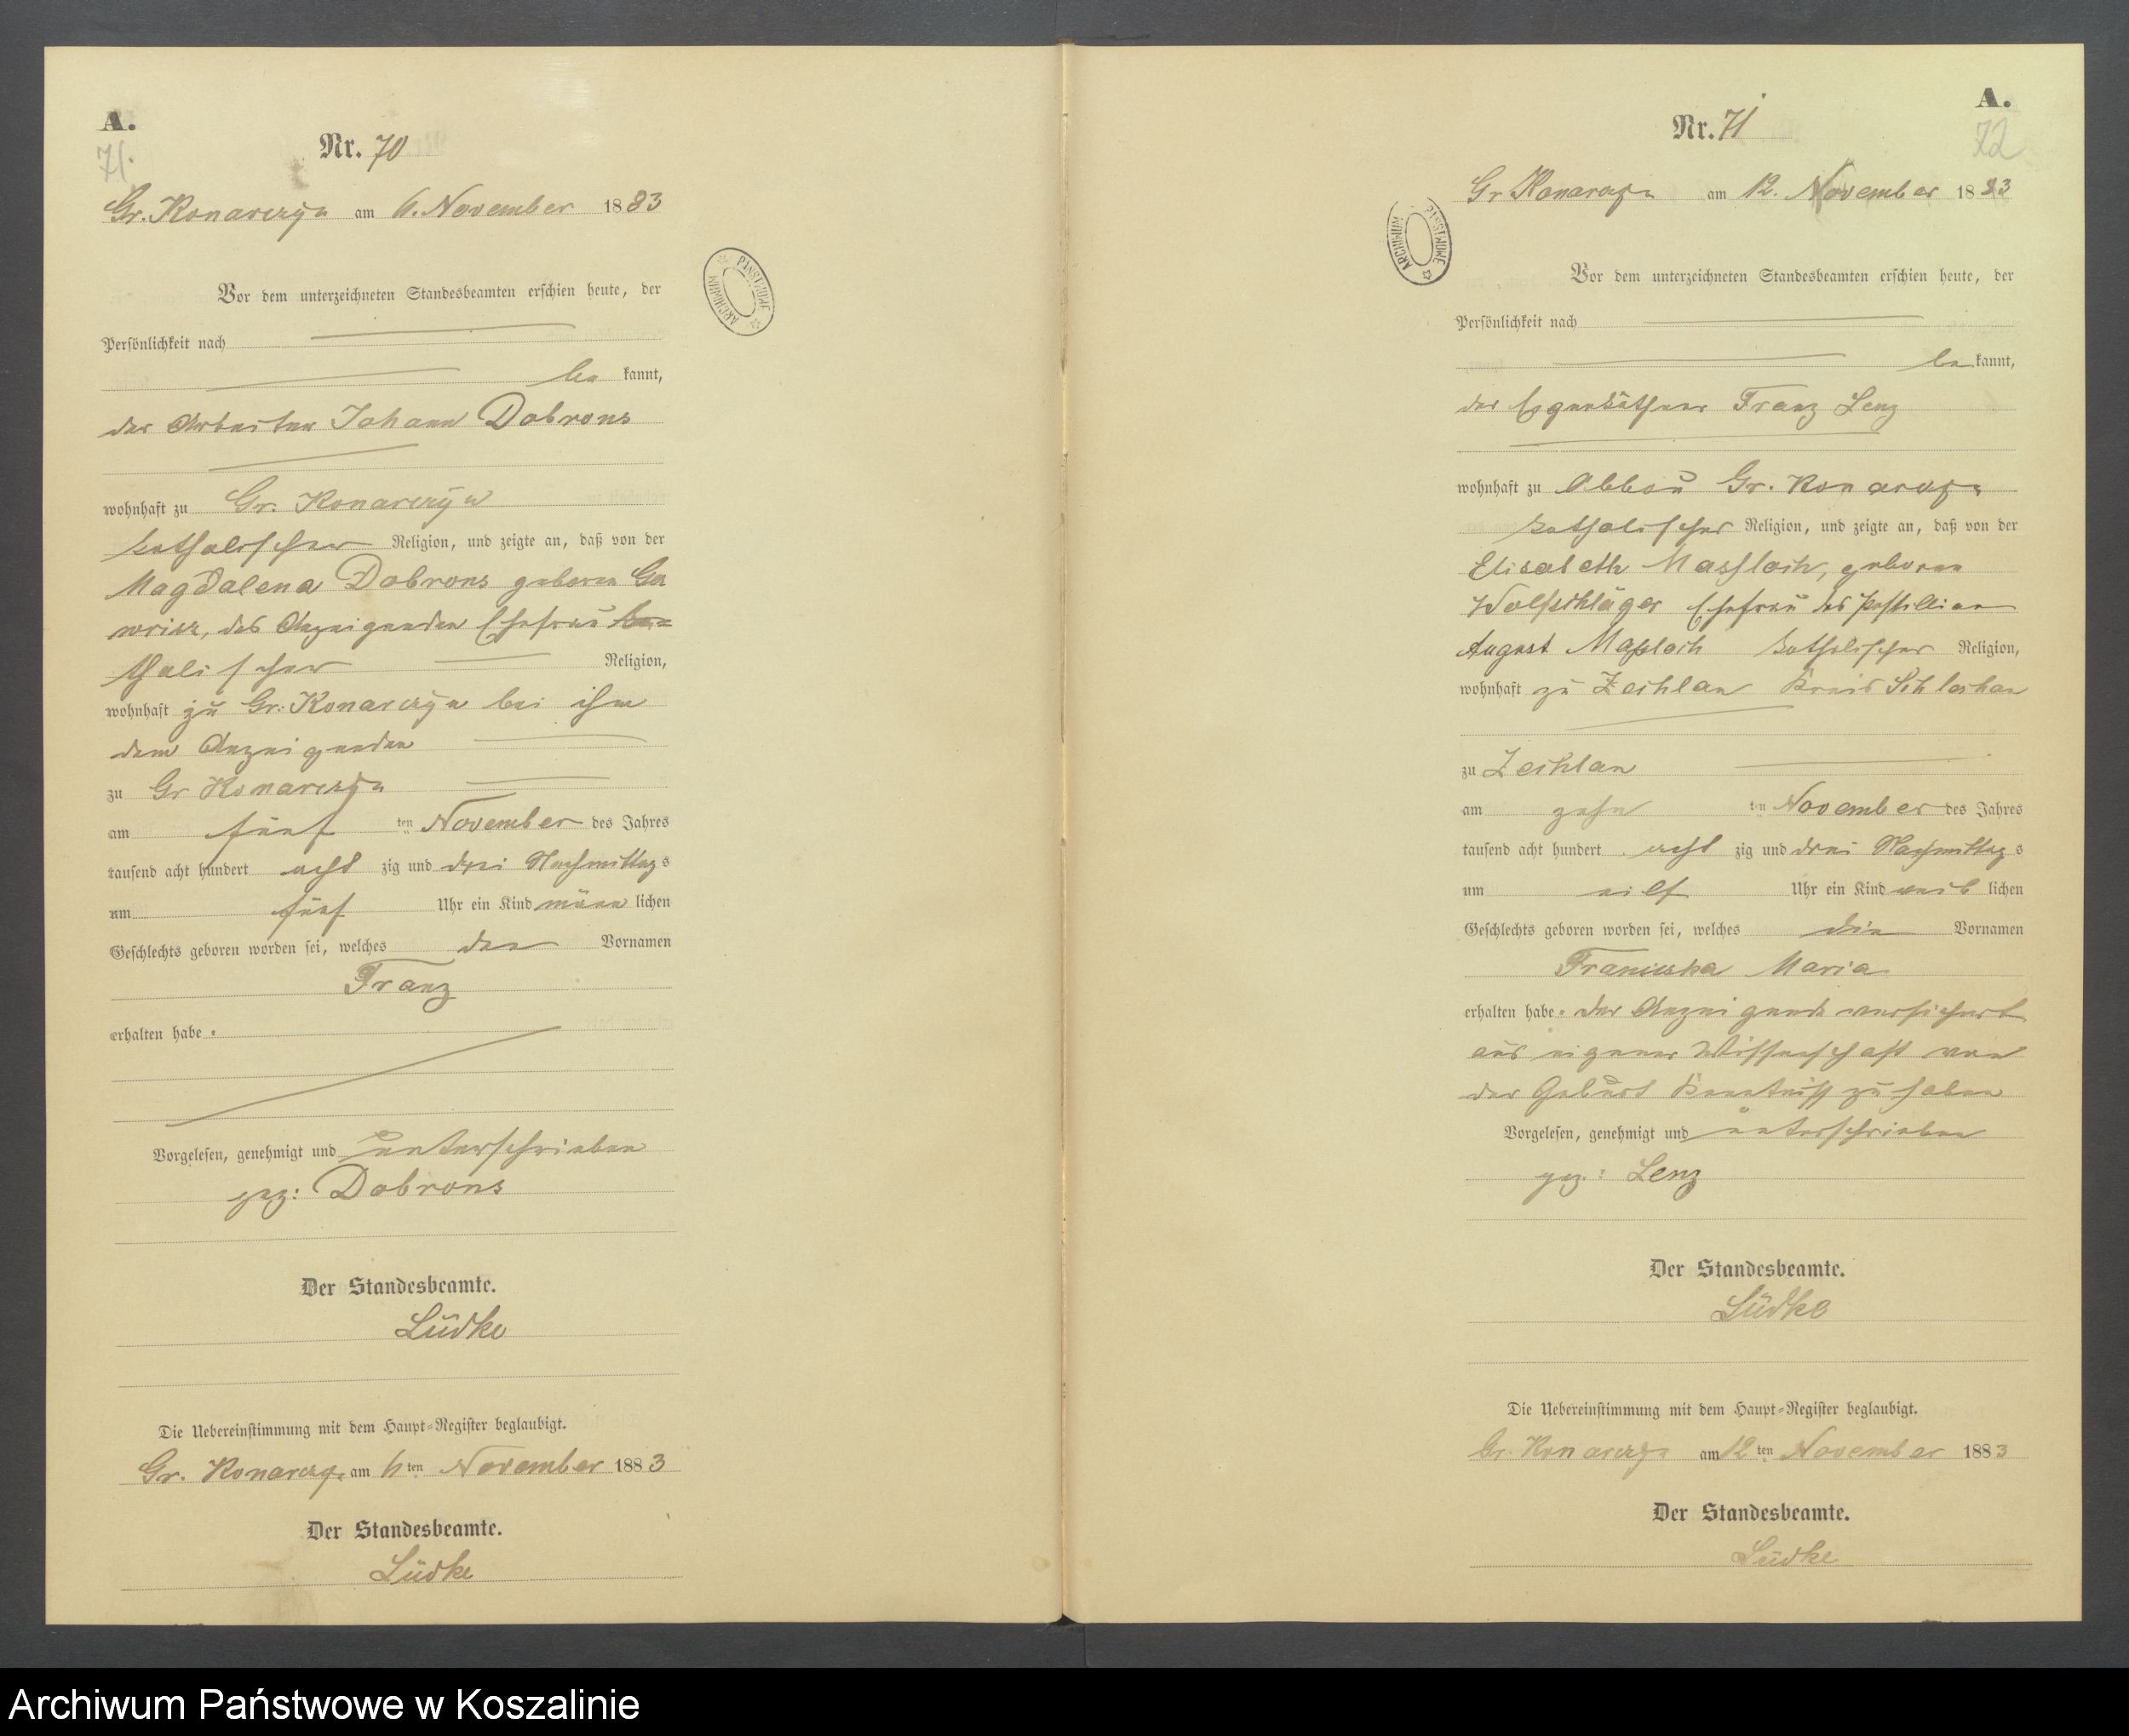 A.
71.
Nr. 70
Gr. Konarczyn am 6. November 1883
ARCHIWUM PAŃSTWOWE
Vor dem unterzeichneten Standesbeamten erschien heute, der
Persönlichkeit nach
be kannt,
der Arbeiter Johann Dobrons
wohnhaft zu Gr. Konarczyn
katholischer Religion, und zeigte an, daß von der
Magdalena Dobrons geboren
des Anzeigenden Ehefrau ka=
tholischer Religion,
wohnhaft zu Gr. Konarczyn bei ihm
dem Anzeigenden
zu Gr Konarczyn
am fünf ten November des Jahres
tausend acht hundert acht zig und drei Nachmittags
um fünf Uhr ein Kind männ lichen
Geschlechts geboren worden sei, welches den Vornamen
Franz
erhalten habe.
Vorgelesen, genehmigt und unterschrieben
gez: Dobrons
Der Standesbeamte.
Lüdke
Die Uebereinstimmung mit dem Haupt=Register beglaubigt.
Gr. Konarczyn am 6ten November 1883
Der Standesbeamte.
Lüdke
A.
72
Nr. 71
Gr Konarczyn am 12. November 1883
ARCHIWUM PAŃSTWOWE
Vor dem unterzeichneten Standesbeamten erschien heute, der
Persönlichkeit nach
be kannt,
der Eigenkäthner Franz Lenz
wohnhaft zu Abbau Gr. Konarczyn
katholischer Religion, und zeigte an, daß von der
Elisabeth Massloch, geborene
Wolfschläger Ehefrau des Postillion
August Massloch katholischer Religion,
wohnhaft zu Zechlau Kreis Schlochau
zu Zechlau
am zehn ten November des Jahres
tausend acht hundert acht zig und drei Nachmittags
um elf Uhr ein Kind weib lichen
Geschlechts geboren worden sei, welches die Vornamen
Franciska Maria
erhalten habe. der Anzeigende versichert
aus eigener Wissenschaft von
der Geburt Kenntniß zu haben
Vorgelesen, genehmigt und unterschrieben
gez.: Lenz
Der Standesbeamte.
Lüdke
Die Uebereinstimmung mit dem Haupt=Register beglaubigt.
Gr. Konarczyn am 12ten November 1883
Der Standesbeamte.
Lüdke
Archiwum Państwowe w Koszalinie